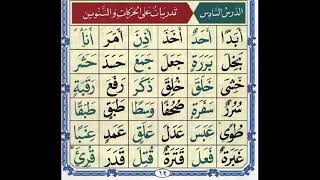 الدرس السادس تدريبات على الحركات والتنوين
أَبَدًا أَحَدٌ أَخَذَ أَذِنَ أَمَرَ أَنَا
بَخِلَ بَرَرَةٍ جَعَلَ جَمَعَ حَسَدَ حَشَرَ
خَشِيَ خَلَقَ خُلِقَ ذَكَرَ رَفَعَ رَقَبَةٍ
سُرُرٌ سَفَرَةٍ صُحُفًا وَسَطًا طَبَقٍ طَبَقًا
طُوًى عَبَسَ عَدَلَ عَلَقٍ عَمَدٍ عِنَبًا
غَبَرَةٌ فَعَلَ قَتَرَةٌ قُتِلَ قَدَرَ قُرِئَ
١٢